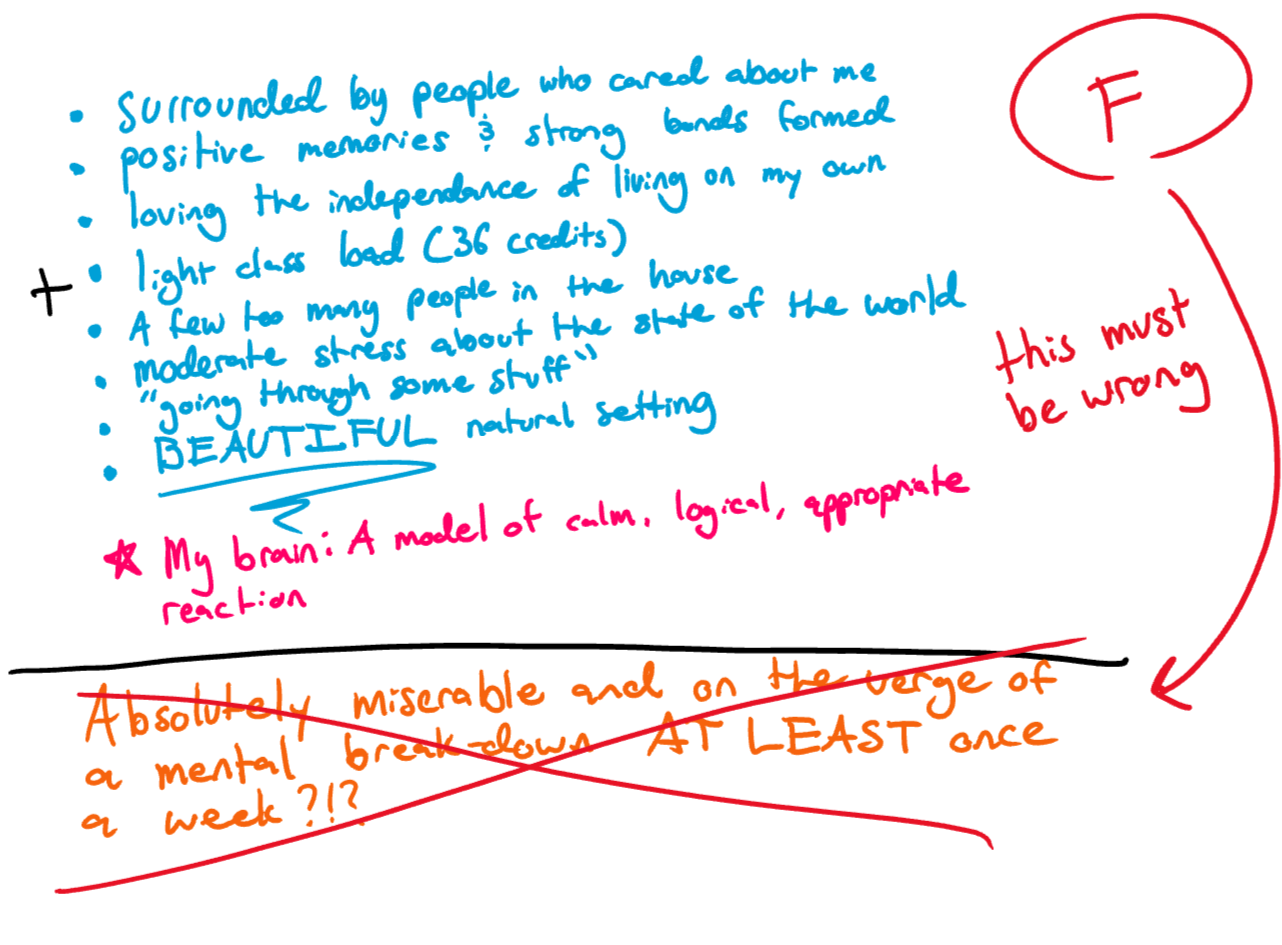 • Surrounded by people who cared about me
• positive memories & strong bonds formed
• loving the independance of living on my own
• light class load (36 credits)
+
• A few too many people in the house
• moderate stress about the state of the world
• "going through some stuff"
• BEAUTIFUL natural setting
☆ My brain: A model of calm, logical, appropriate
reaction
Absolutely miserable and on the verge of
a mental break-down AT LEAST once
a week?!?
F
this must
be wrong